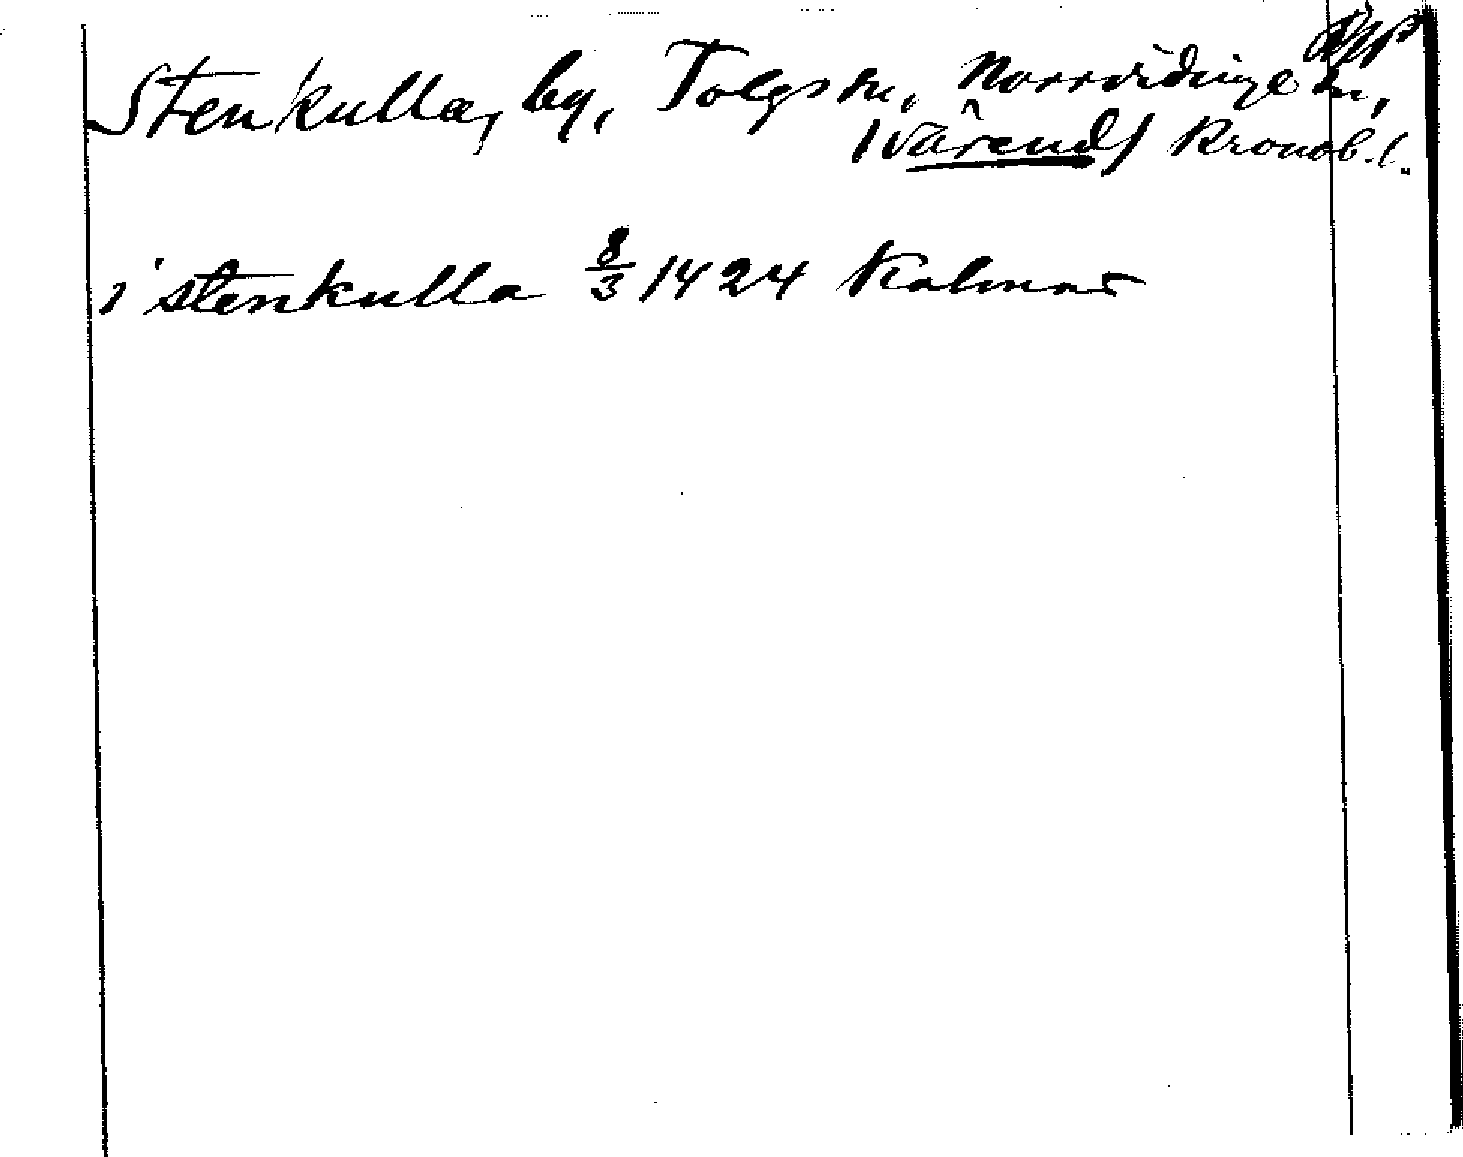 Stenkulla, by, Tolgs sn, Norrvidinge hd,
/Värend/ Kronob. l.
i stenkulla 8/3 1424 Kalmar